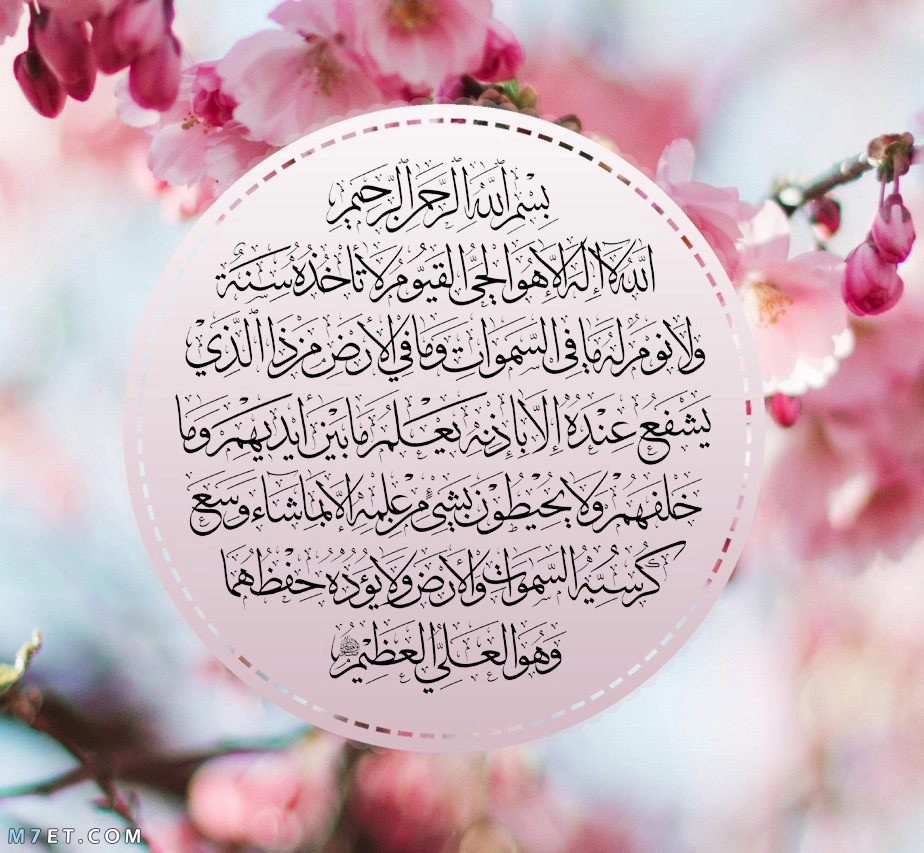 بِسْمِ ٱللَّهِ ٱلرَّحْمَٰنِ ٱلرَّحِيمِ
اللَّهُ لَا إِلَٰهَ إِلَّا هُوَ الْحَيُّ الْقَيُّومُ لَا تَأْخُذُهُ سِنَةٌ
وَلَا نَوْمٌ لَهُ مَا فِي السَّمَوَاتِ وَمَا فِي الْأَرْضِ مَنْ ذَا الَّذِي
يَشْفَعُ عِنْدَهُ إِلَّا بِإِذْنِهِ يَعْلَمُ مَا بَيْنَ أَيْدِيهِمْ وَمَا
خَلْفَهُمْ وَلَا يُحِيطُونَ بِشَيْءٍ مِنْ عِلْمِهِ إِلَّا بِمَا شَاءَ وَسِعَ
كُرْسِيُّهُ السَّمَوَاتِ وَالْأَرْضَ وَلَا يَؤُدُهُ حِفْظُهُمَا
وَهُوَ الْعَلِيُّ الْعَظِيمُ
M7ET.COM